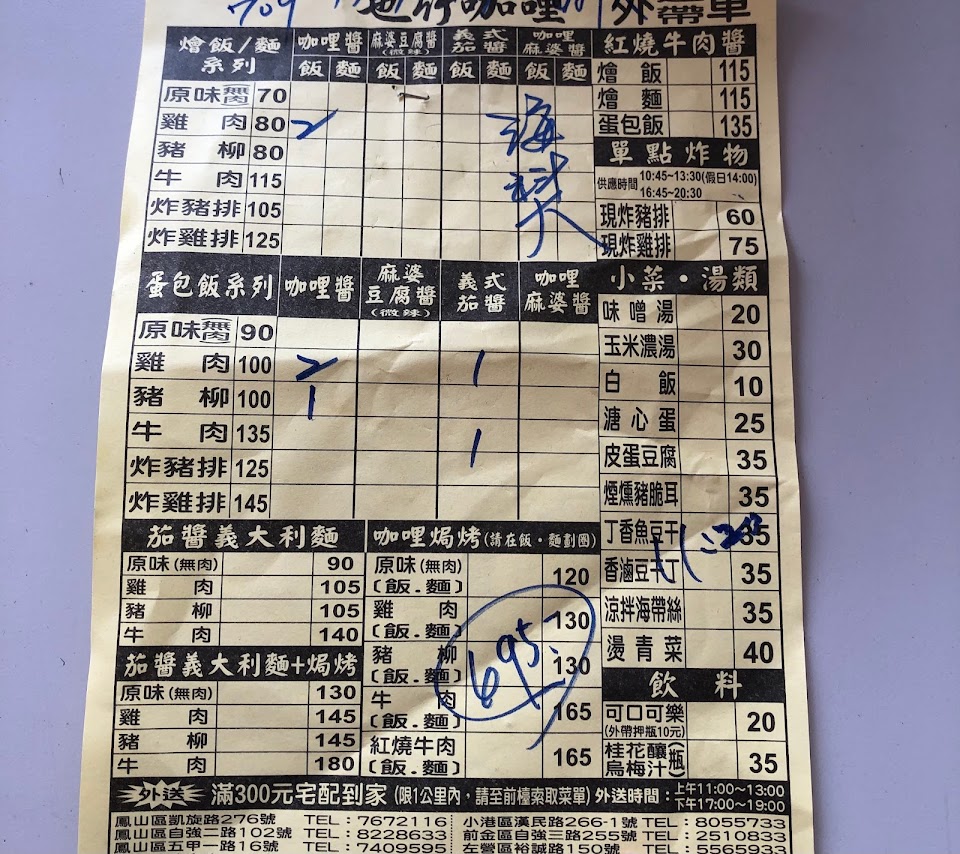 709
咖哩 外帶單
燴飯/麵系列 咖哩醬 麻婆豆腐醬(微辣) 義式茄醬 咖哩麻婆醬
飯 麵 飯 麵 飯 麵 飯 麵
原味(無肉) 70
雞肉 80 2
豬柳 80
牛肉 115
炸豬排 105
炸雞排 125
紅燒牛肉醬
燴飯 115
燴麵 115
蛋包飯 135
單點炸物
供應時間 10:45~13:30(假日14:00)
16:45~20:30
現炸豬排 60
現炸雞排 75
蛋包飯系列 咖哩醬 麻婆豆腐醬(微辣) 義式茄醬 咖哩麻婆醬
原味(無肉) 90
雞肉 100 2 1
豬柳 100 1
牛肉 135
炸豬排 125 1
炸雞排 145
小菜・湯類
味噌湯 20
玉米濃湯 30
白飯 10
溏心蛋 25
皮蛋豆腐 35
煙燻豬脆耳 35
丁香魚豆干 35
香滷豆干丁 35
涼拌海帶絲 35
燙青菜 40
飲料
可口可樂 20
(外帶押瓶10元)
桂花釀烏梅汁(瓶) 35
茄醬義大利麵
原味(無肉) 90
雞肉 105
豬柳 105
牛肉 140
茄醬義大利麵+焗烤
原味(無肉) 130
雞肉 145
豬柳 145
牛肉 180
咖哩焗烤(請在飯・麵劃圈)
原味(無肉)
(飯.麵) 120
雞肉
(飯.麵) 130
豬柳
(飯.麵) 130
牛肉
(飯.麵) 165
紅燒牛肉
(飯.麵) 165
695
外送 滿300元宅配到家(限1公里內,請至前檯索取菜單)外送時間:上午11:00~13:00
下午17:00~19:00
鳳山區凱旋路276號 TEL:7672116
鳳山區自強二路102號 TEL:8228633
鳳山區五甲一路16號 TEL:7409595
小港區漢民路266-1號 TEL:8055733
前金區自強三路255號 TEL:2510833
左營區裕誠路150號 TEL:5565933